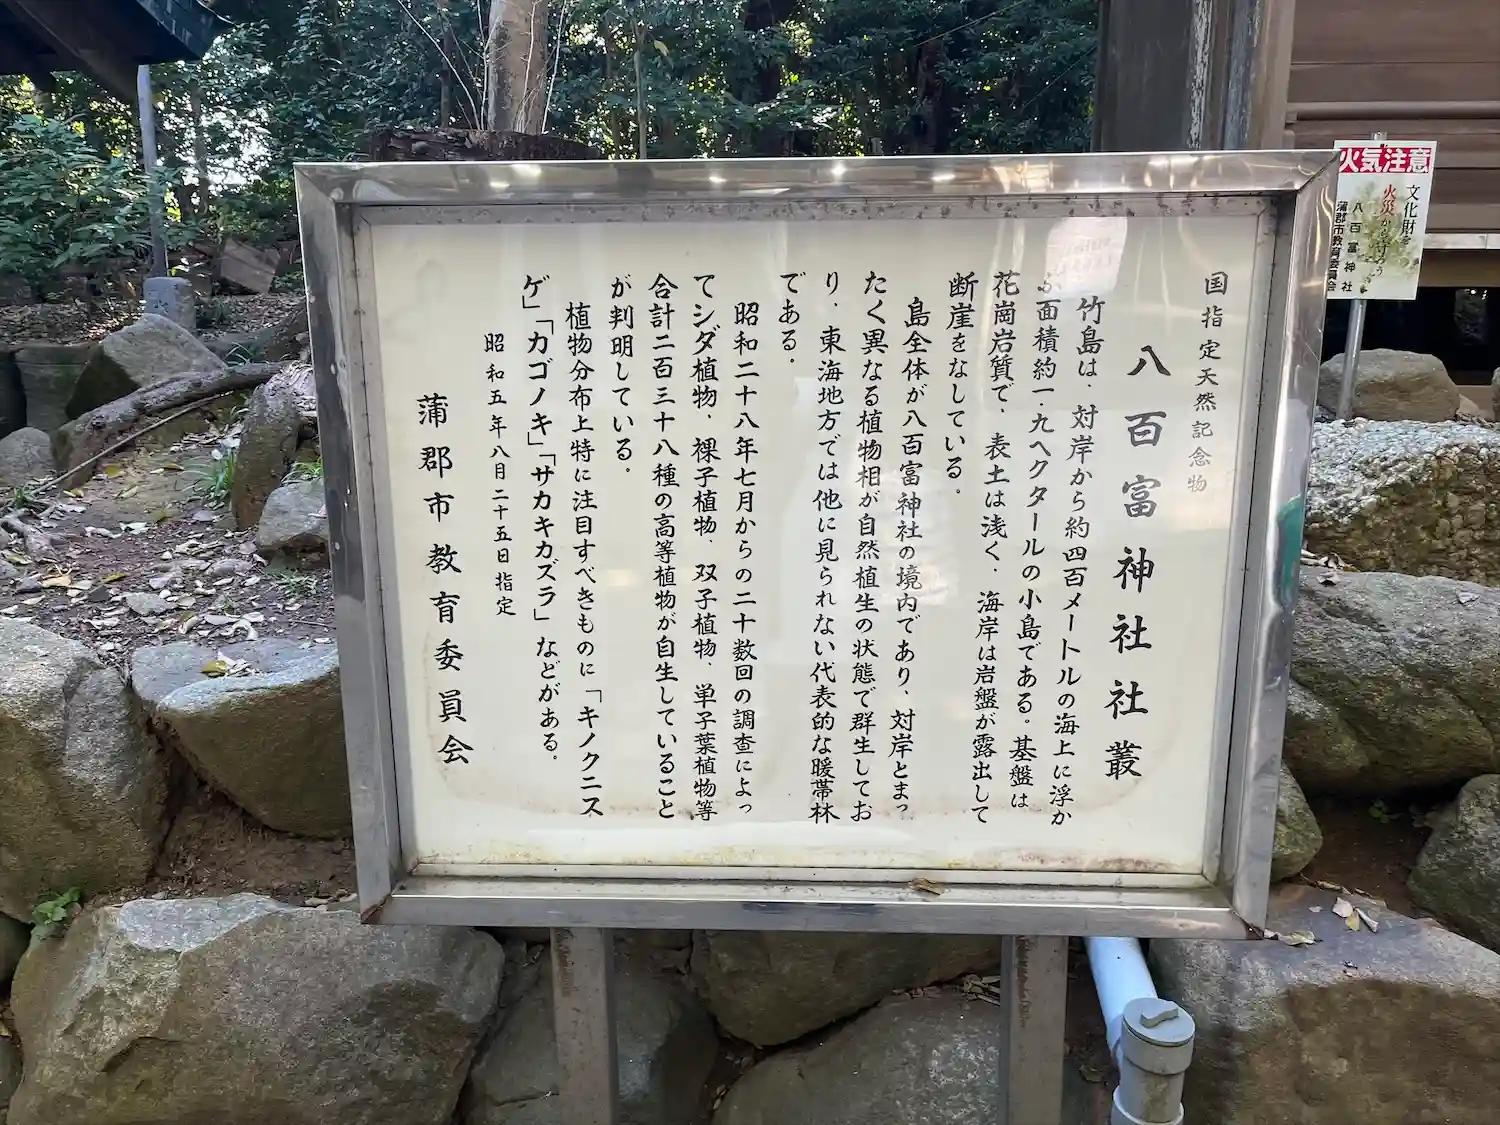 国指定天然記念物
八百富神社社叢
竹島は、対岸から約四百メートルの海上に浮か
ぶ面積約一・九ヘクタールの小島である。基盤は
花崗岩質で、表土は浅く、海岸は岩盤が露出して
断崖をなしている。
島全体が八百富神社の境内であり、対岸とまっ
たく異なる植物相が自然植生の状態で群生してお
り、東海地方では他に見られない代表的な暖帯林
である。
昭和二十八年七月からの二十数回の調査によっ
てシダ植物、裸子植物、双子植物、単子葉植物等
合計二百三十八種の高等植物が自生していること
が判明している。
植物分布上特に注目すべきものに「キノクニス
ゲ」「カゴノキ」「サカキカズラ」などがある。
昭和五年八月二十五日指定
蒲郡市教育委員会
火気注意
文化財を
火災から守ろう
八百富神社
蒲郡市教育委員会